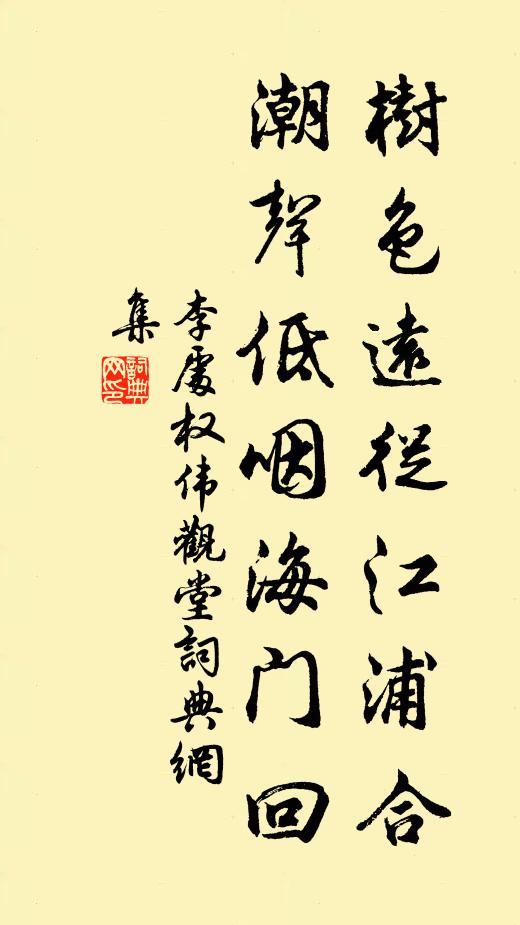 樹色遠從江浦合
潮聲低咽海门回
李處权伟觀堂詞典網
集
詞典
网印